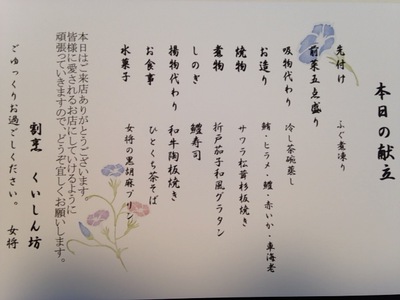 本日の献立
先付け　ふぐ煮凍り
前菜五点盛り
吸物代わり　冷し茶碗蒸し
お造り　鮪・ヒラメ・鱧・赤いか・車海老
焼物　サワラ松茸杉板焼き
煮物　折戸茄子和風グラタン
しのぎ　鱧寿司
揚物代わり　和牛陶板焼き
お食事　ひとくち茶そば
水菓子　女将の黒胡麻プリン
本日はご来店ありがとうございます。
皆様に愛されるお店にしていけるように
頑張っていきますので、どうぞ宜しくお願いします。
割烹　くいしん坊
ごゆっくりお過ごしください。　女将